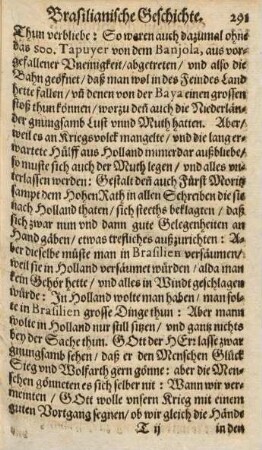 Brasilianische Geschichte. 291
Thun verbliebe: So waren auch dazumal ohne
das 500. Tapuyer von dem Banjola, aus vor-
gefallener Vneinigkeit/abgetreten/ und also die
Bahn geöfnet/ daß man wol in des Feindes Land
hette fallen/ vn̄ denen von der Baya einen grossen
stoß thun können/ worzu deñ auch die Niederlän-
der gnuugsamb Lust vnnd Muth hatten. Aber/
weil es an Kriegsvolck mangelte/ und die lang er-
wartete Hülff aus Holland immerdar außbliebe/
so muste sich auch der Muth legen/ und alles un-
terlassen werden: Gestalt deñ auch Fürst Moritz
sampt dem Hohen Rath in allen Schreiben die sie
nach Holland thaten/ sich steeths beklagten/ daß
sich zwar nun und dann gute Gelegenheiten an
Hand gäben/ etwas trefliches außzurichten: A-
ber dieselbe müste man in Brasilien versäumen/
weil sie in Holland versäumet würden/ alda man
kein Gehör hette/ und alles in Windt geschlagen
würde: In Holland wolte man haben/ man sol-
te in Brasilien grosse Dinge thun: Aber mann
wolte in Holland nur still sitzen/ und gantz nichts
bey der Sache thun. GOtt der HErr lasse zwar
gnuugsamb sehen/ daß er den Menschen Glück
Sieg und Wolfarth gern gönne: aber die Men-
schen gönneten es sich selber nit: Wann wir ver-
meinten/ GOtt wolle vnsern Krieg mit einem
guten Vortgang segnen/ ob wir gleich die Hände
T ij in den